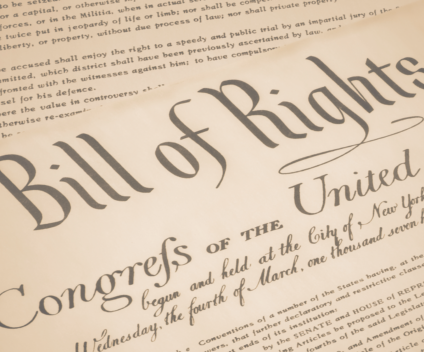 to be seized
for a capital, or otherwise
forces, or in the Militia, when in actual
twice put in jeopardy of life or limb; nor shall be
liberty, or property, without due process of law; nor shall private property
e accused shall enjoy the right to a speedy and public trial by an impartial jury of the
mmitted, which district shall have been previously ascertained by law,
fronted with the witnesses against him; to have compulsor
sel for his defence.
ere the value in controversy
therwise re-exami
Bill of Rights
Congreſs OF THE United
begun and held at the City of New York
Wednesday, the fourth of March, one thousand seven h
Conventions of a number of the States having, at the
that further declaratory and restrictive clause
ends of its institution:
by the SENATE and HOUSE of REPR
ing Articles be proposed to the Le
fourths of the said Legisla
and Amendment of
of the Orig